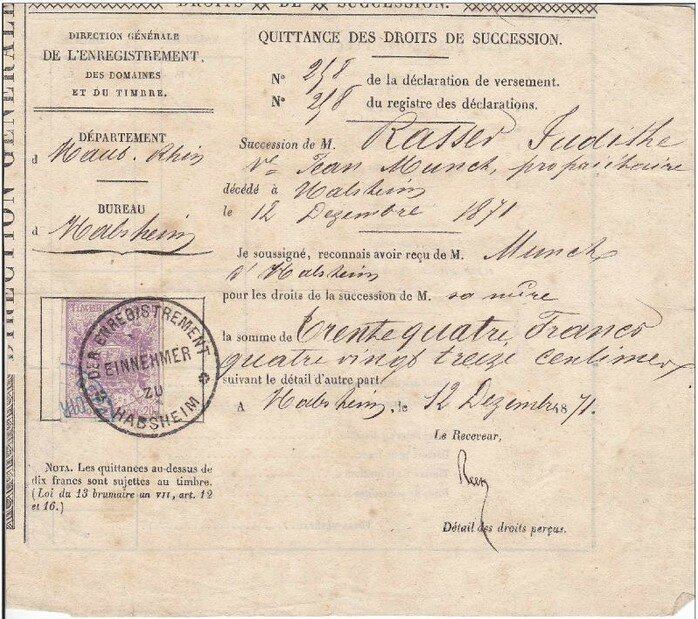 DROITS DE SUCCESSION.
DIRECTION GÉNÉRALE
DIRECTION GÉNÉRALE
DE L'ENREGISTREMENT,
DES DOMAINES
ET DU TIMBRE.
DÉPARTEMENT
d Haut-Rhin
BUREAU
d Habsheim
QUITTANCE DES DROITS DE SUCCESSION.
N° 258 de la déclaration de versement.
N° 258 du registre des déclarations.
Succession de M. Rasser Judithe
Ve Jean Munch, propriétaire
décédé à Habsheim
le 12 Dezembre 1871
Je soussigné, reconnais avoir reçu de M. Munch
d'Habsheim
pour les droits de la succession de M. sa mère
la somme de Trente quatre Francs
quatre vingt treize centimes
suivant le détail d'autre part
A Habsheim, le 12 Dezemb. 1871.
Le Receveur,
Détail des droits perçus.
TIMBRE
DER ENREGISTREMENT
EINNEHMER
ZU
HABSHEIM
NOTA. Les quittances au-dessus de
dix francs sont sujettes au timbre.
(Loi du 13 brumaire an VII, art. 12
et 16.)